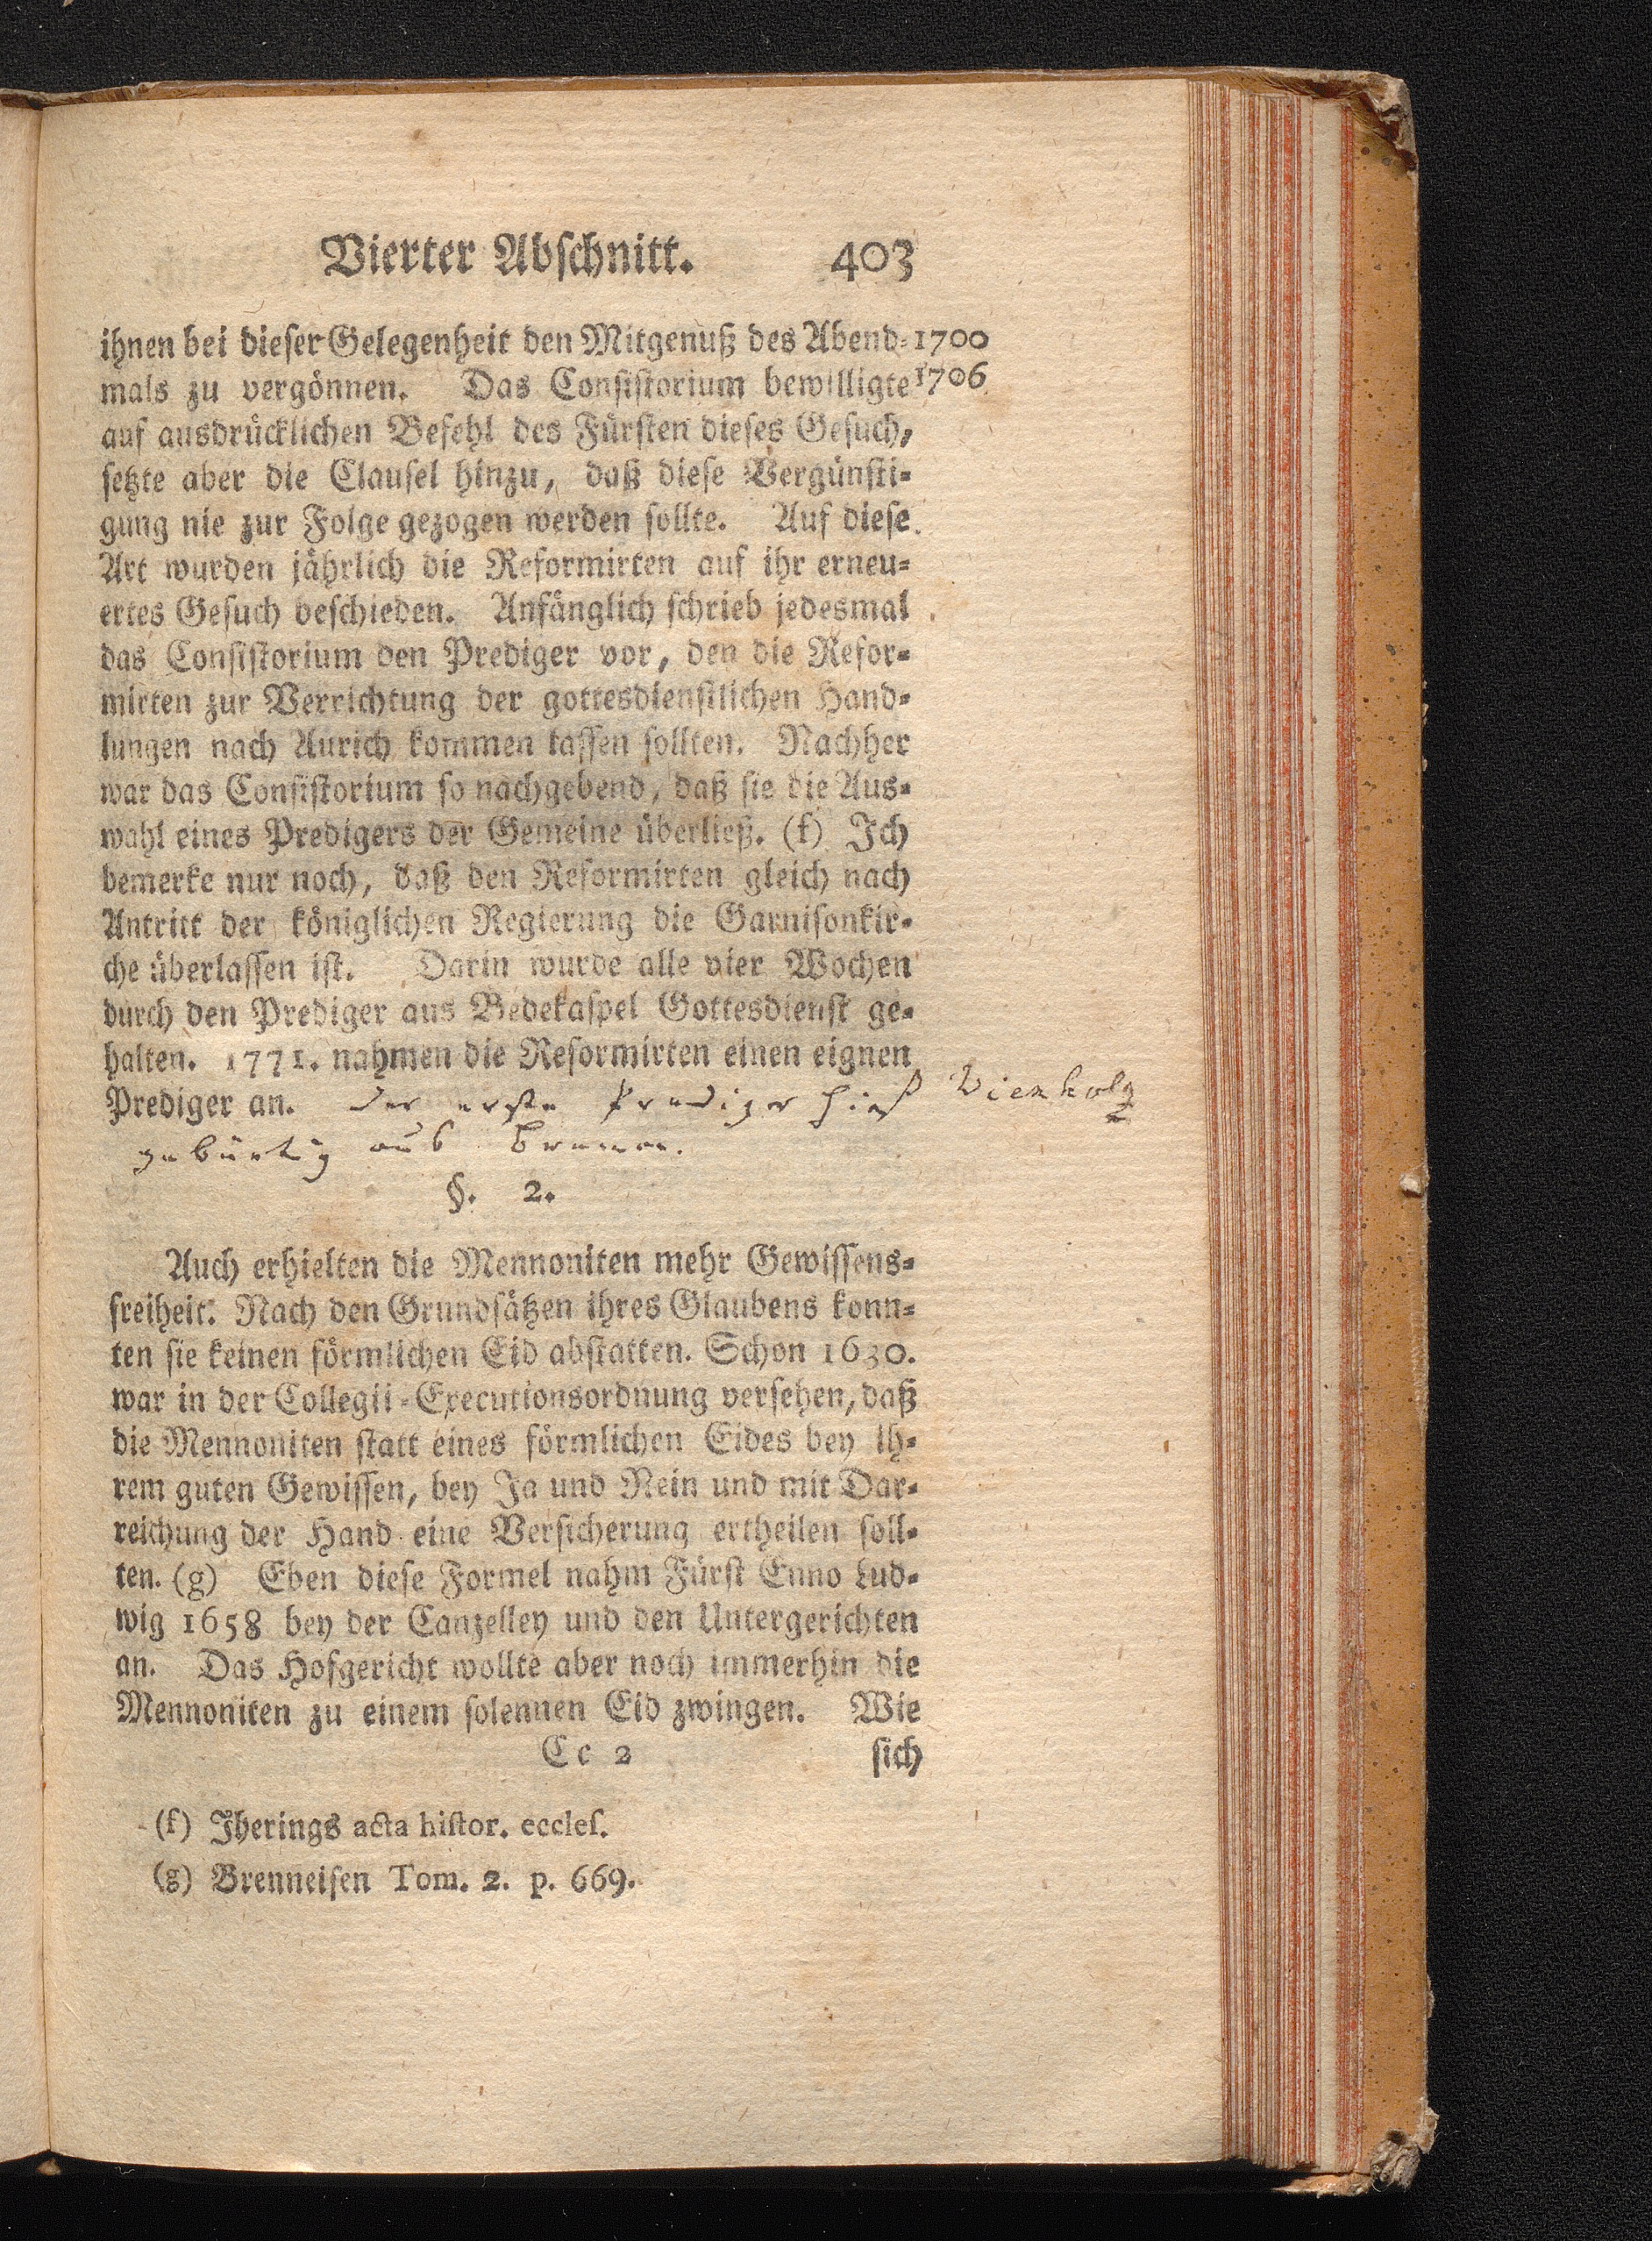 Vierter Abschnitt. 403
ihnen bei dieser Gelegenheit den Mitgenuß des Abend- 1700
mals zu vergönnen. Das Consistorium bewilligte 1706
auf ausdrücklichen Befehl des Fürsten dieses Gesuch,
setzte aber die Clausel hinzu, daß diese Vergünsti-
gung nie zur Folge gezogen werden sollte. Auf diese
Art wurden jährlich die Reformirten auf ihr erneu-
ertes Gesuch beschieden. Anfänglich schrieb jedesmal
das Consistorium den Prediger vor, den die Refor-
mirten zur Verrichtung der gottesdienstlichen Hand-
lungen nach Aurich kommen lassen sollten. Nachher
war das Consistorium so nachgebend, daß sie die Aus-
wahl eines Predigers der Gemeine überließ. (f) Ich
bemerke nur noch, daß den Reformirten gleich nach
Antritt der königlichen Regierung die Garnisonkir-
che überlassen ist. Darin wurde alle vier Wochen
durch den Prediger aus Bedekaspel Gottesdienst ge-
halten. 1771. nahmen die Reformirten einen eignen
Prediger an. Der erste Prediger hieß Vienholz
gebürtig aus Bremen.
§. 2.
Auch erhielten die Mennoniten mehr Gewissens-
freiheit. Nach den Grundsätzen ihres Glaubens konn-
ten sie keinen förmlichen Eid abstatten. Schon 1630.
war in der Collegii-Executionsordnung versehen, daß
die Mennoniten statt eines förmlichen Eides bey ih-
rem guten Gewissen, bey Ja und Nein und mit Dar-
reichung der Hand eine Versicherung ertheilen soll-
ten. (g) Eben diese Formel nahm Fürst Enno Lud-
wig 1658 bey der Canzelley und den Untergerichten
an. Das Hofgericht wollte aber noch immerhin die
Mennoniten zu einem solennen Eid zwingen. Wie
Cc 2 sich
(f) Iherings acta histor. eccles.
(g) Brenneisen Tom. 2. p. 669.